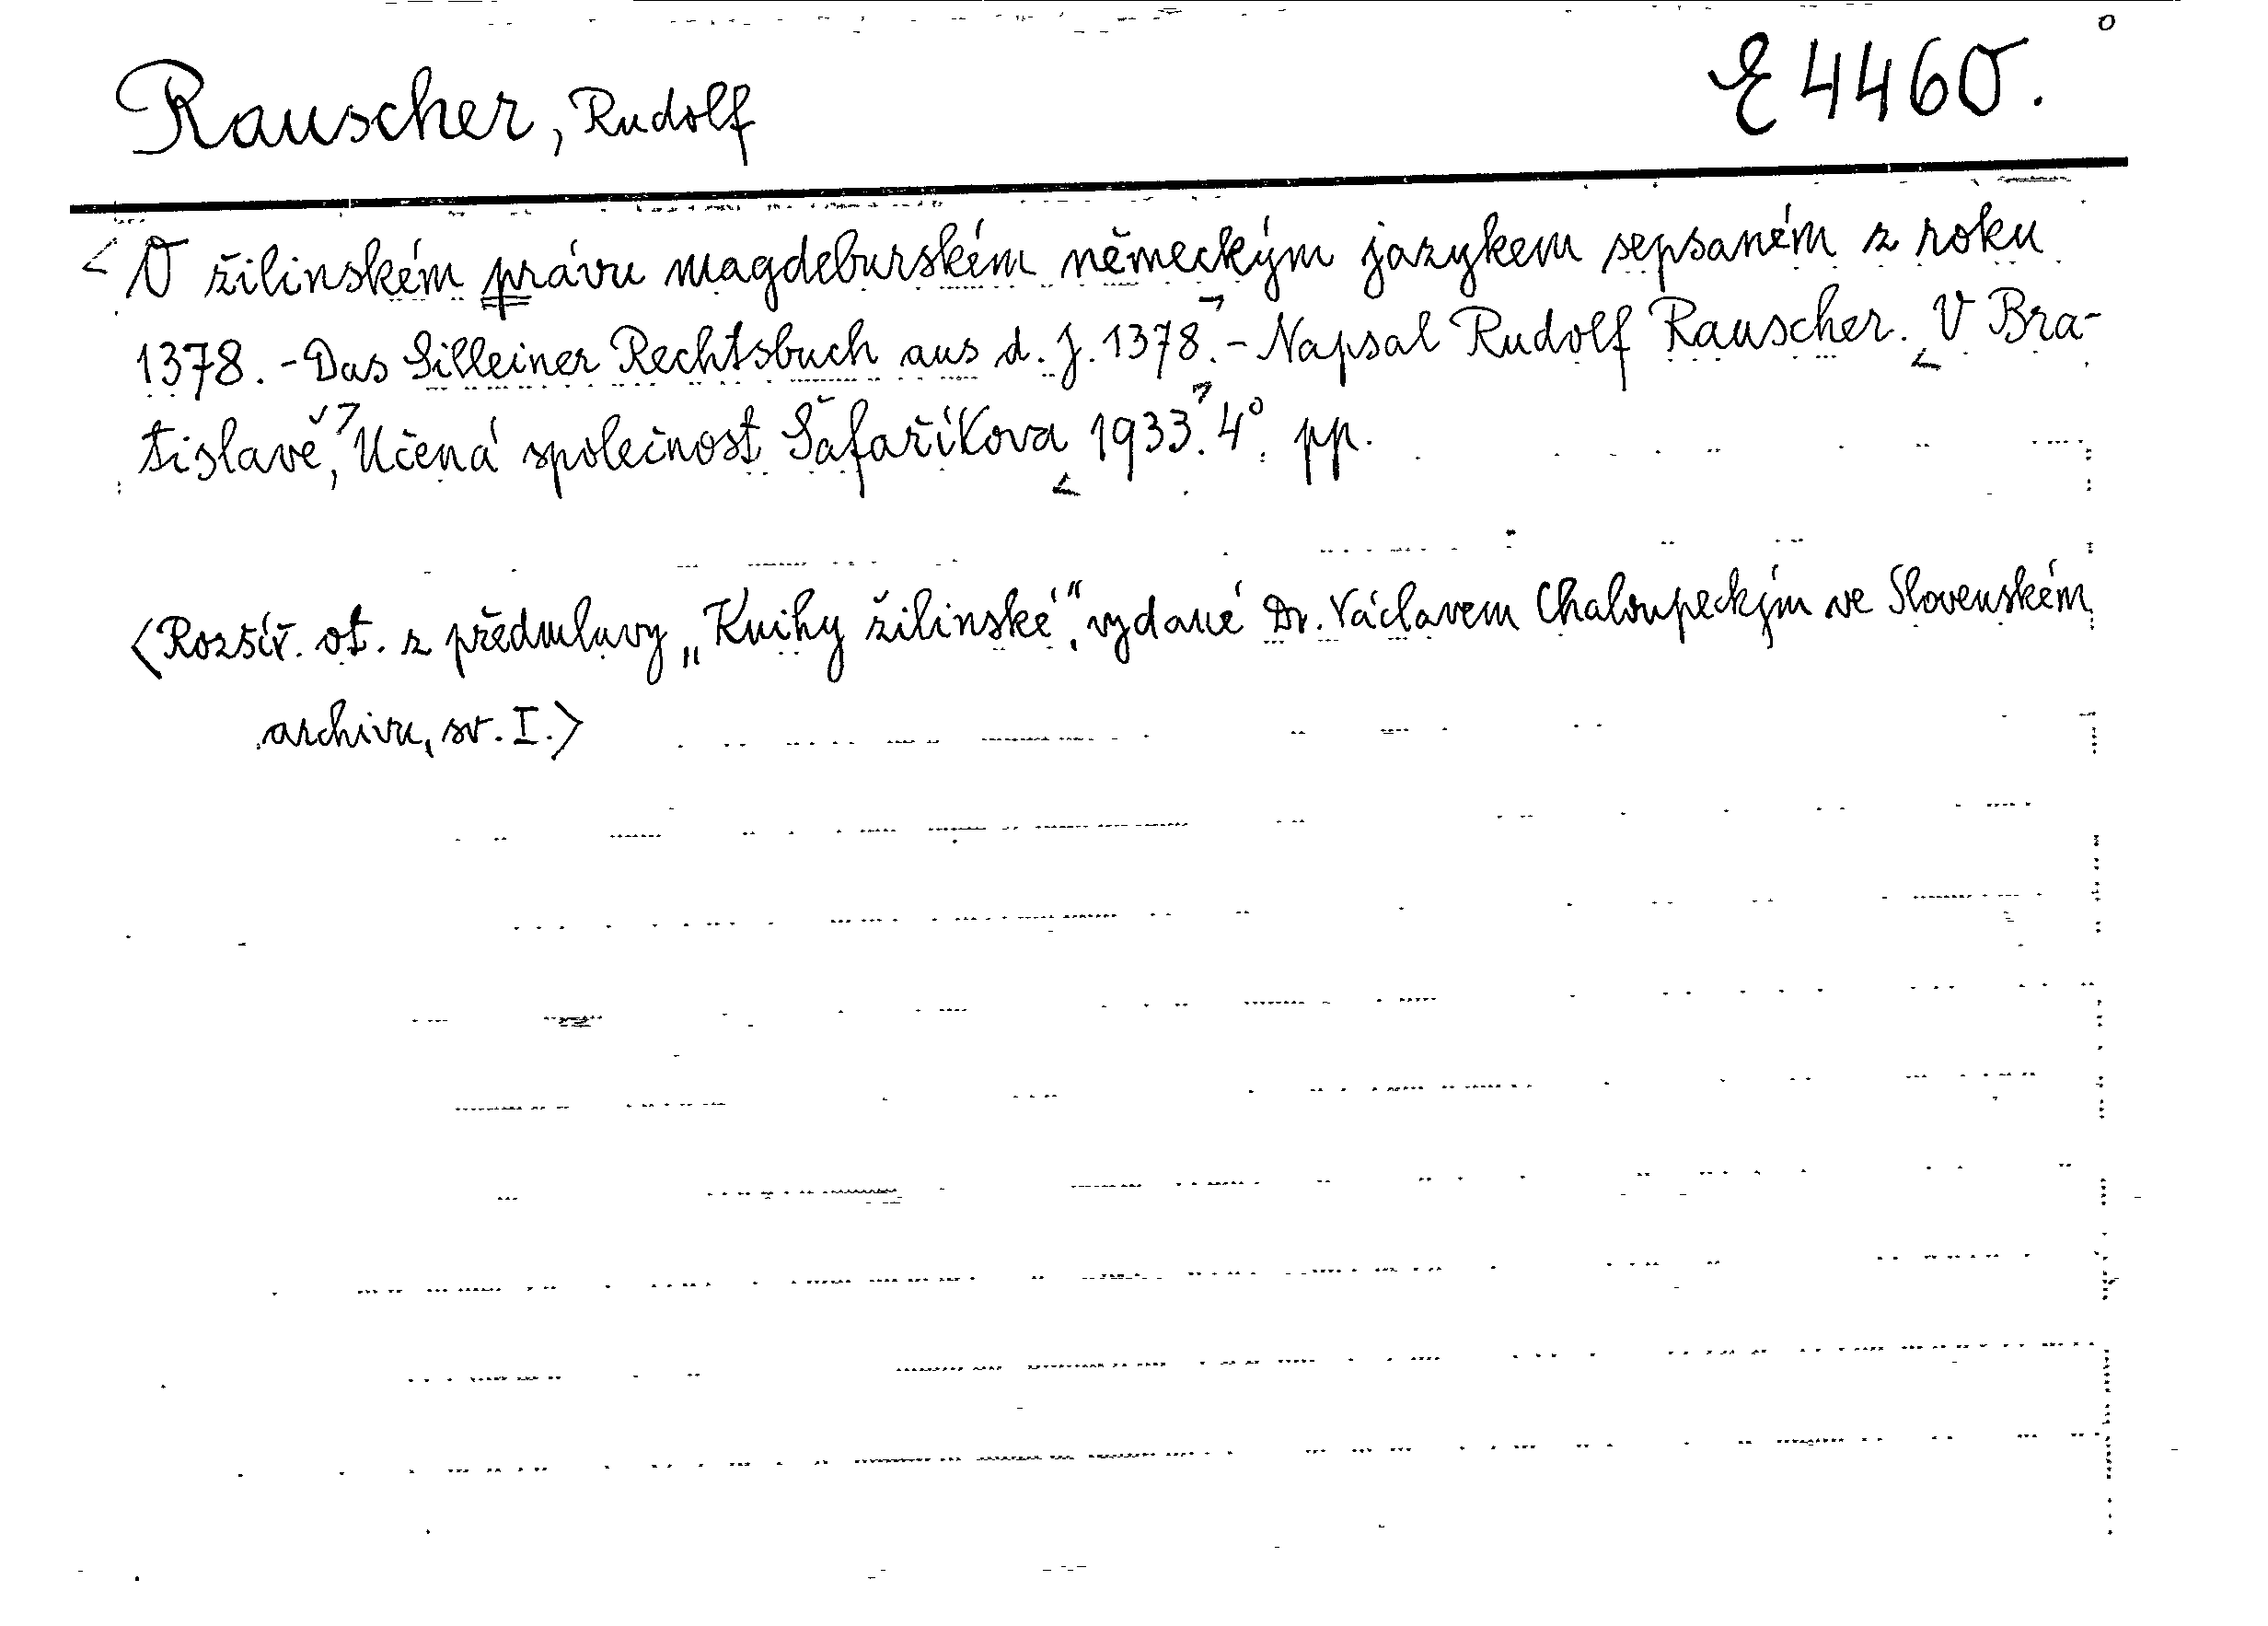 Rauscher, Rudolf
E 4460.
<O žilinském právu magdeburském německým jazykem sepsaném z roku
1378. - Das Silleiner Rechtsbuch aus d. J. 1378.> - Napsal Rudolf Rauscher. <V Bra-
tislavě,> Učená společnost Šafaříkova <1933.> 4°. pp.
<Rozšíř. ot. z předmluvy „Knihy žilinské“, vydané Dr. Václavem Chaloupeckým ve Slovenském
archivu, sv. I.>